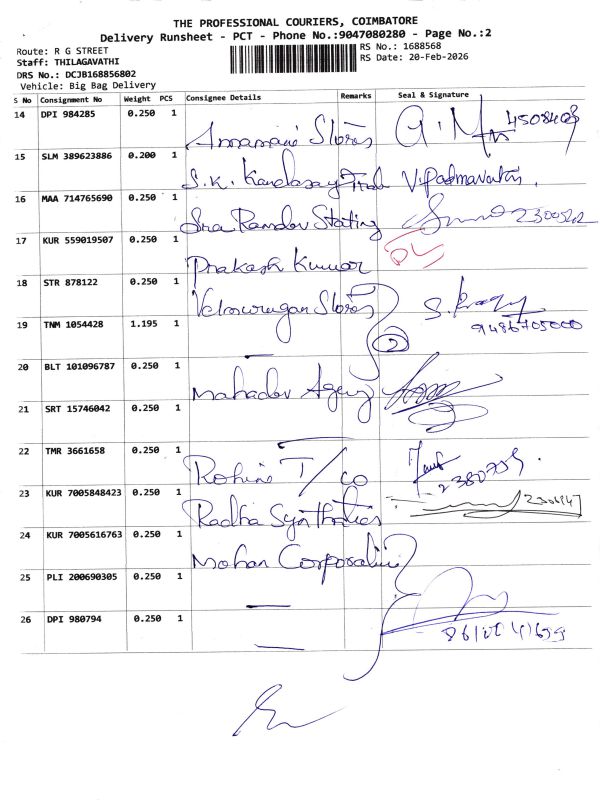 THE PROFESSIONAL COURIERS, COIMBATORE
Delivery Runsheet - PCT - Phone No.:9047080280 - Page No.:2
Route: R G STREET
Staff: THILAGAVATHI
DRS No.: DCJB168856802
Vehicle: Big Bag Delivery
RS No.: 1688568
RS Date: 20-Feb-2026
S No Consignment No Weight PCS Consignee Details Remarks Seal & Signature
14 DPI 984285 0.250 1 Stores
15 SLM 389623886 0.200 1 S.K. V.Padmavathi
16 MAA 714765690 0.250 1 Sra Ramdev
17 KUR 559019507 0.250 1 Prakash Kumar
18 STR 878122 0.250 1 Velmurugan Stores
19 TNM 1054428 1.195 1 9486705000
20 BLT 101096787 0.250 1 Mahadev Agency
21 SRT 15746042 0.250 1
22 TMR 3661658 0.250 1 Rohini T/co
23 KUR 7005848423 0.250 1 Radha Synthetics
24 KUR 7005616763 0.250 1 Mohan Corporation
25 PLI 200690305 0.250 1
26 DPI 980794 0.250 1